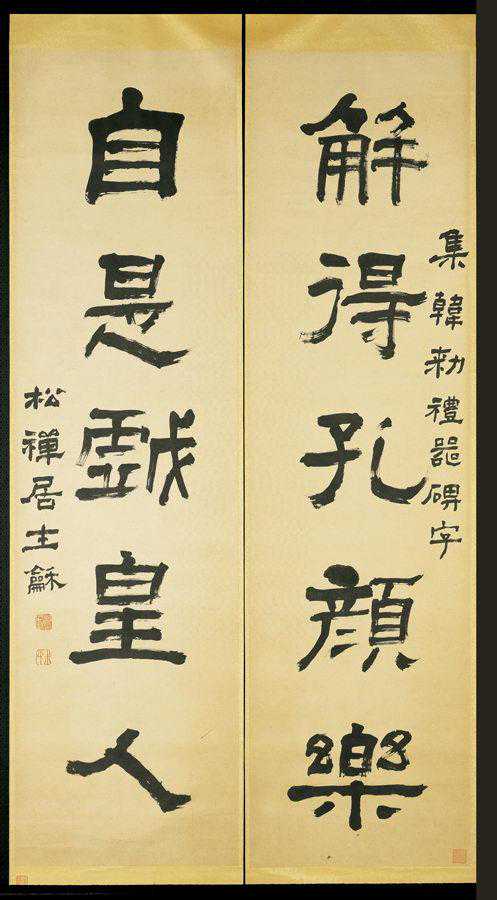 集韓勅禮器碑字
解得孔顏樂
自是戲皇人
松禪居士龢